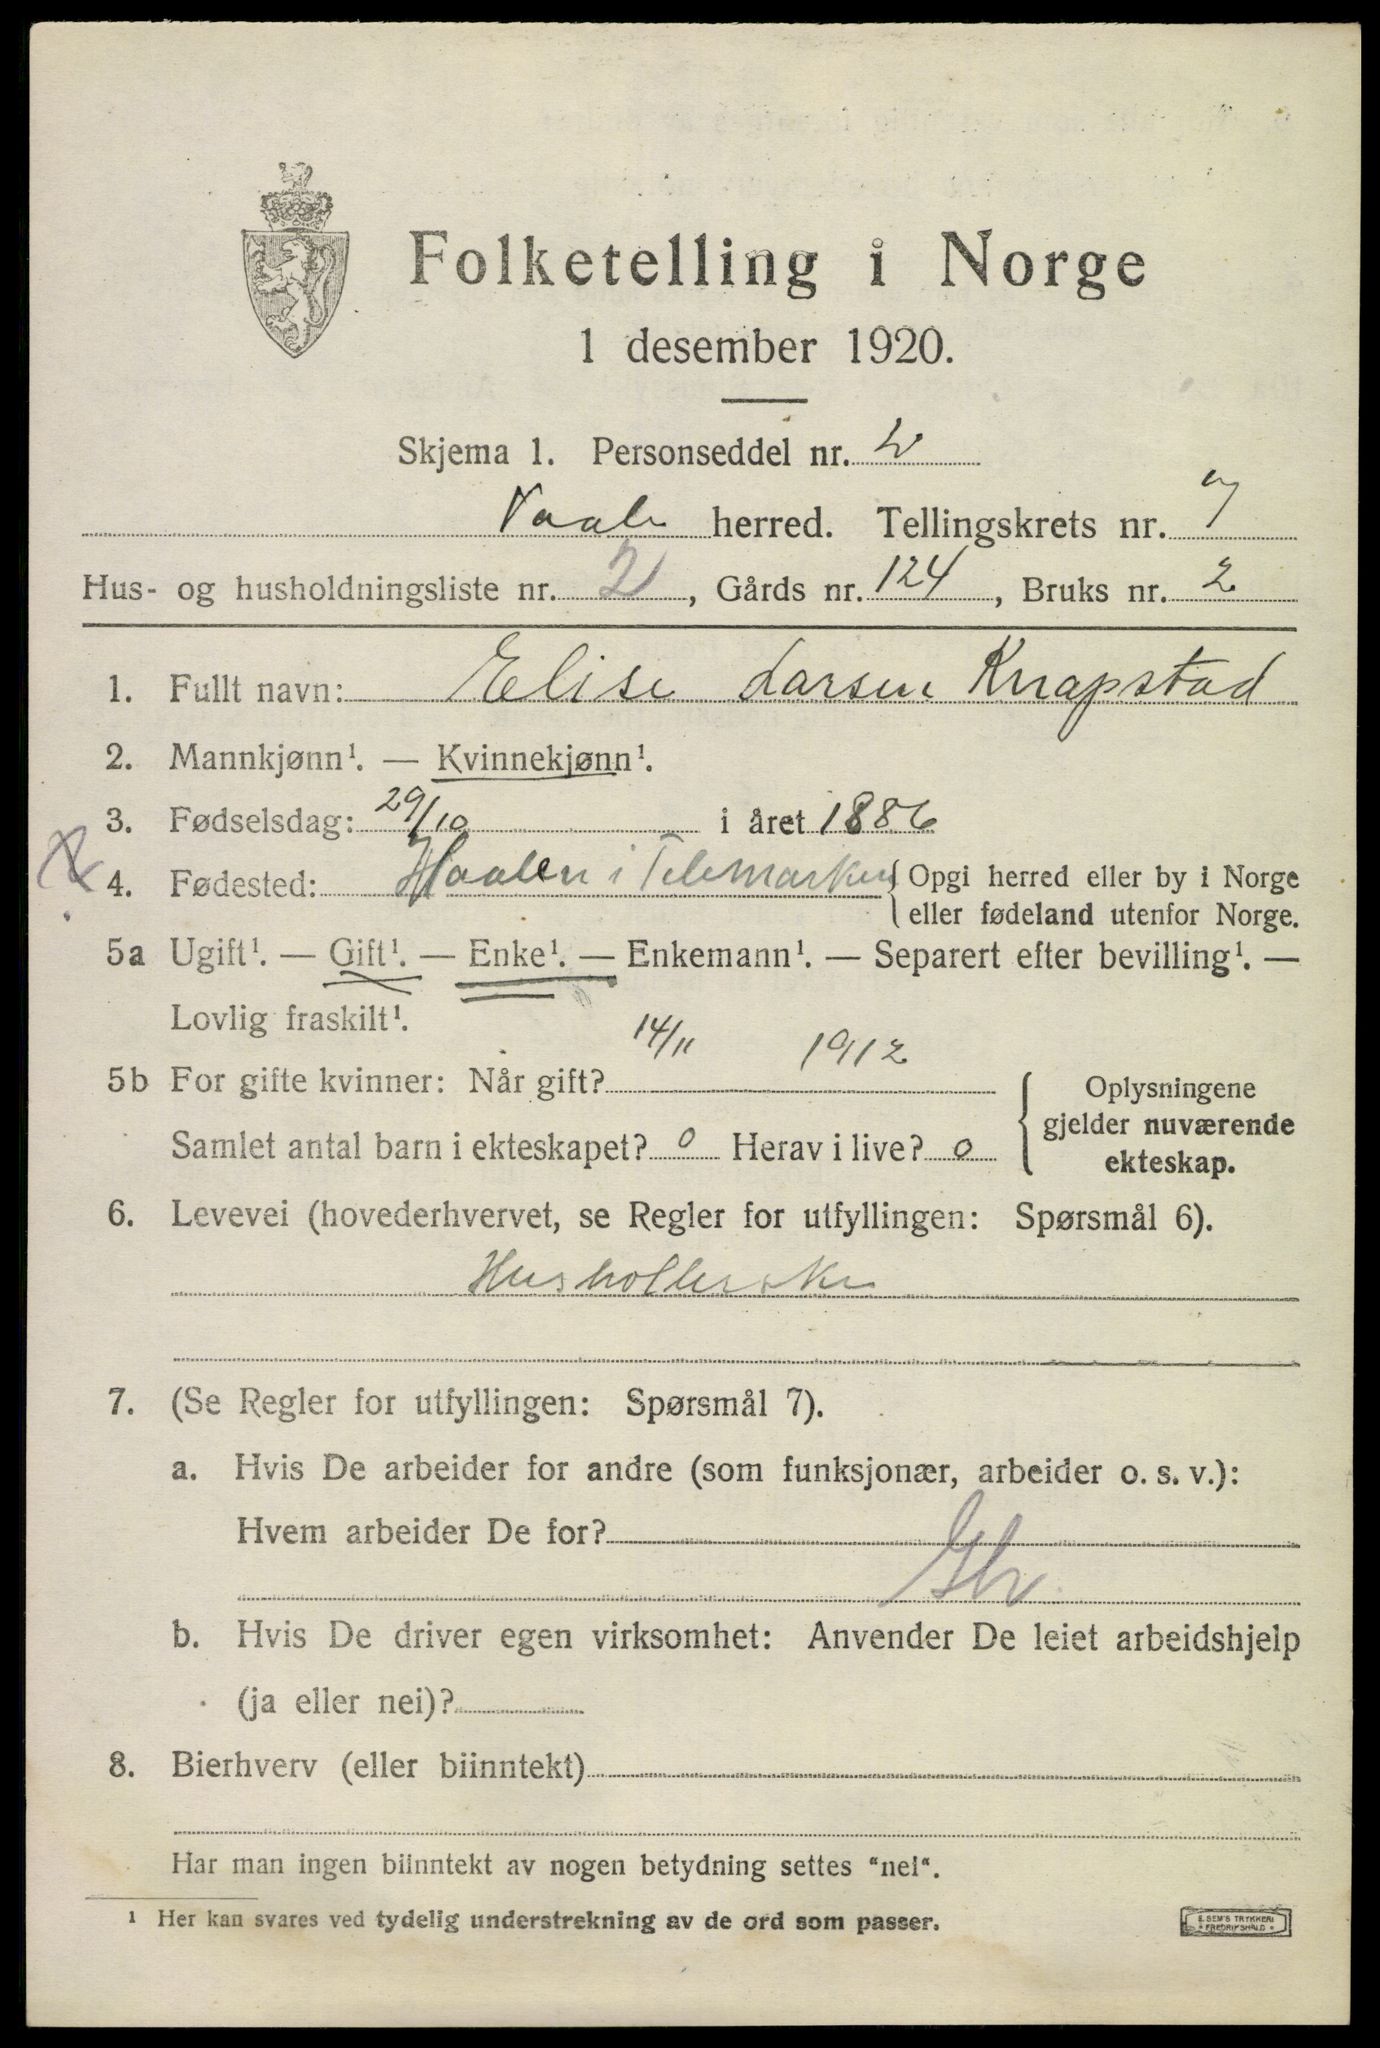 Folketelling i Norge
1 desember 1920.
Skjema 1. Personseddel nr. 2
Vaale herred. Tellingskrets nr. 7
Hus- og husholdningsliste nr. 2, Gårds nr. 124, Bruks nr. 2
1. Fullt navn: Elise Larsen Knapstad
2. Mannkjønn¹. — Kvinnekjønn¹.
3. Fødselsdag: 29/10 i året 1886
4. Fødested: i Telemarken { Opgi herred eller by i Norge
eller fødeland utenfor Norge.
5a Ugift¹. — Gift¹. — Enke¹. — Enkemann¹. — Separert efter bevilling¹. —
Lovlig fraskilt¹.
5b For gifte kvinner: Når gift? 14/11 1912
Samlet antal barn i ekteskapet? 0 Herav i live? 0
{ Oplysningene
gjelder nuværende
ekteskap.
6. Levevei (hovederhvervet, se Regler for utfyllingen: Spørsmål 6).
Husholderske
7. (Se Regler for utfyllingen: Spørsmål 7).
a. Hvis De arbeider for andre (som funksjonær, arbeider o. s. v.):
Hvem arbeider De for?
b. Hvis De driver egen virksomhet: Anvender De leiet arbeidshjelp
(ja eller nei)?
8. Bierhverv (eller biinntekt)
Har man ingen biinntekt av nogen betydning settes "nei".
¹ Her kan svares ved tydelig understrekning av de ord som passer.
E. SEM'S TRYKKERI
FREDRIKSHALD